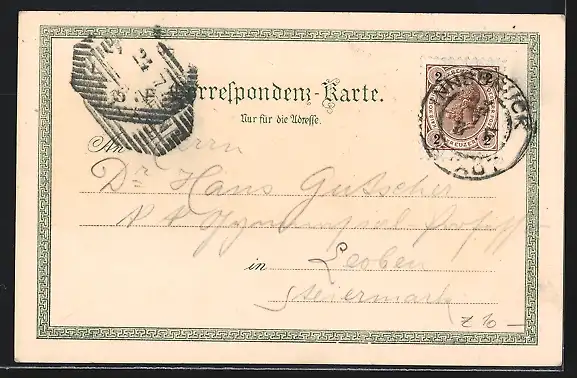 Correspondenz-Karte.
Nur für die Adresse.
An Herrn
Dr. Hans Gutscher
k k Gymnasial Profess
in Leoben
Steiermark
INNSBRUCK
2 2
KREUZER
z 10 –